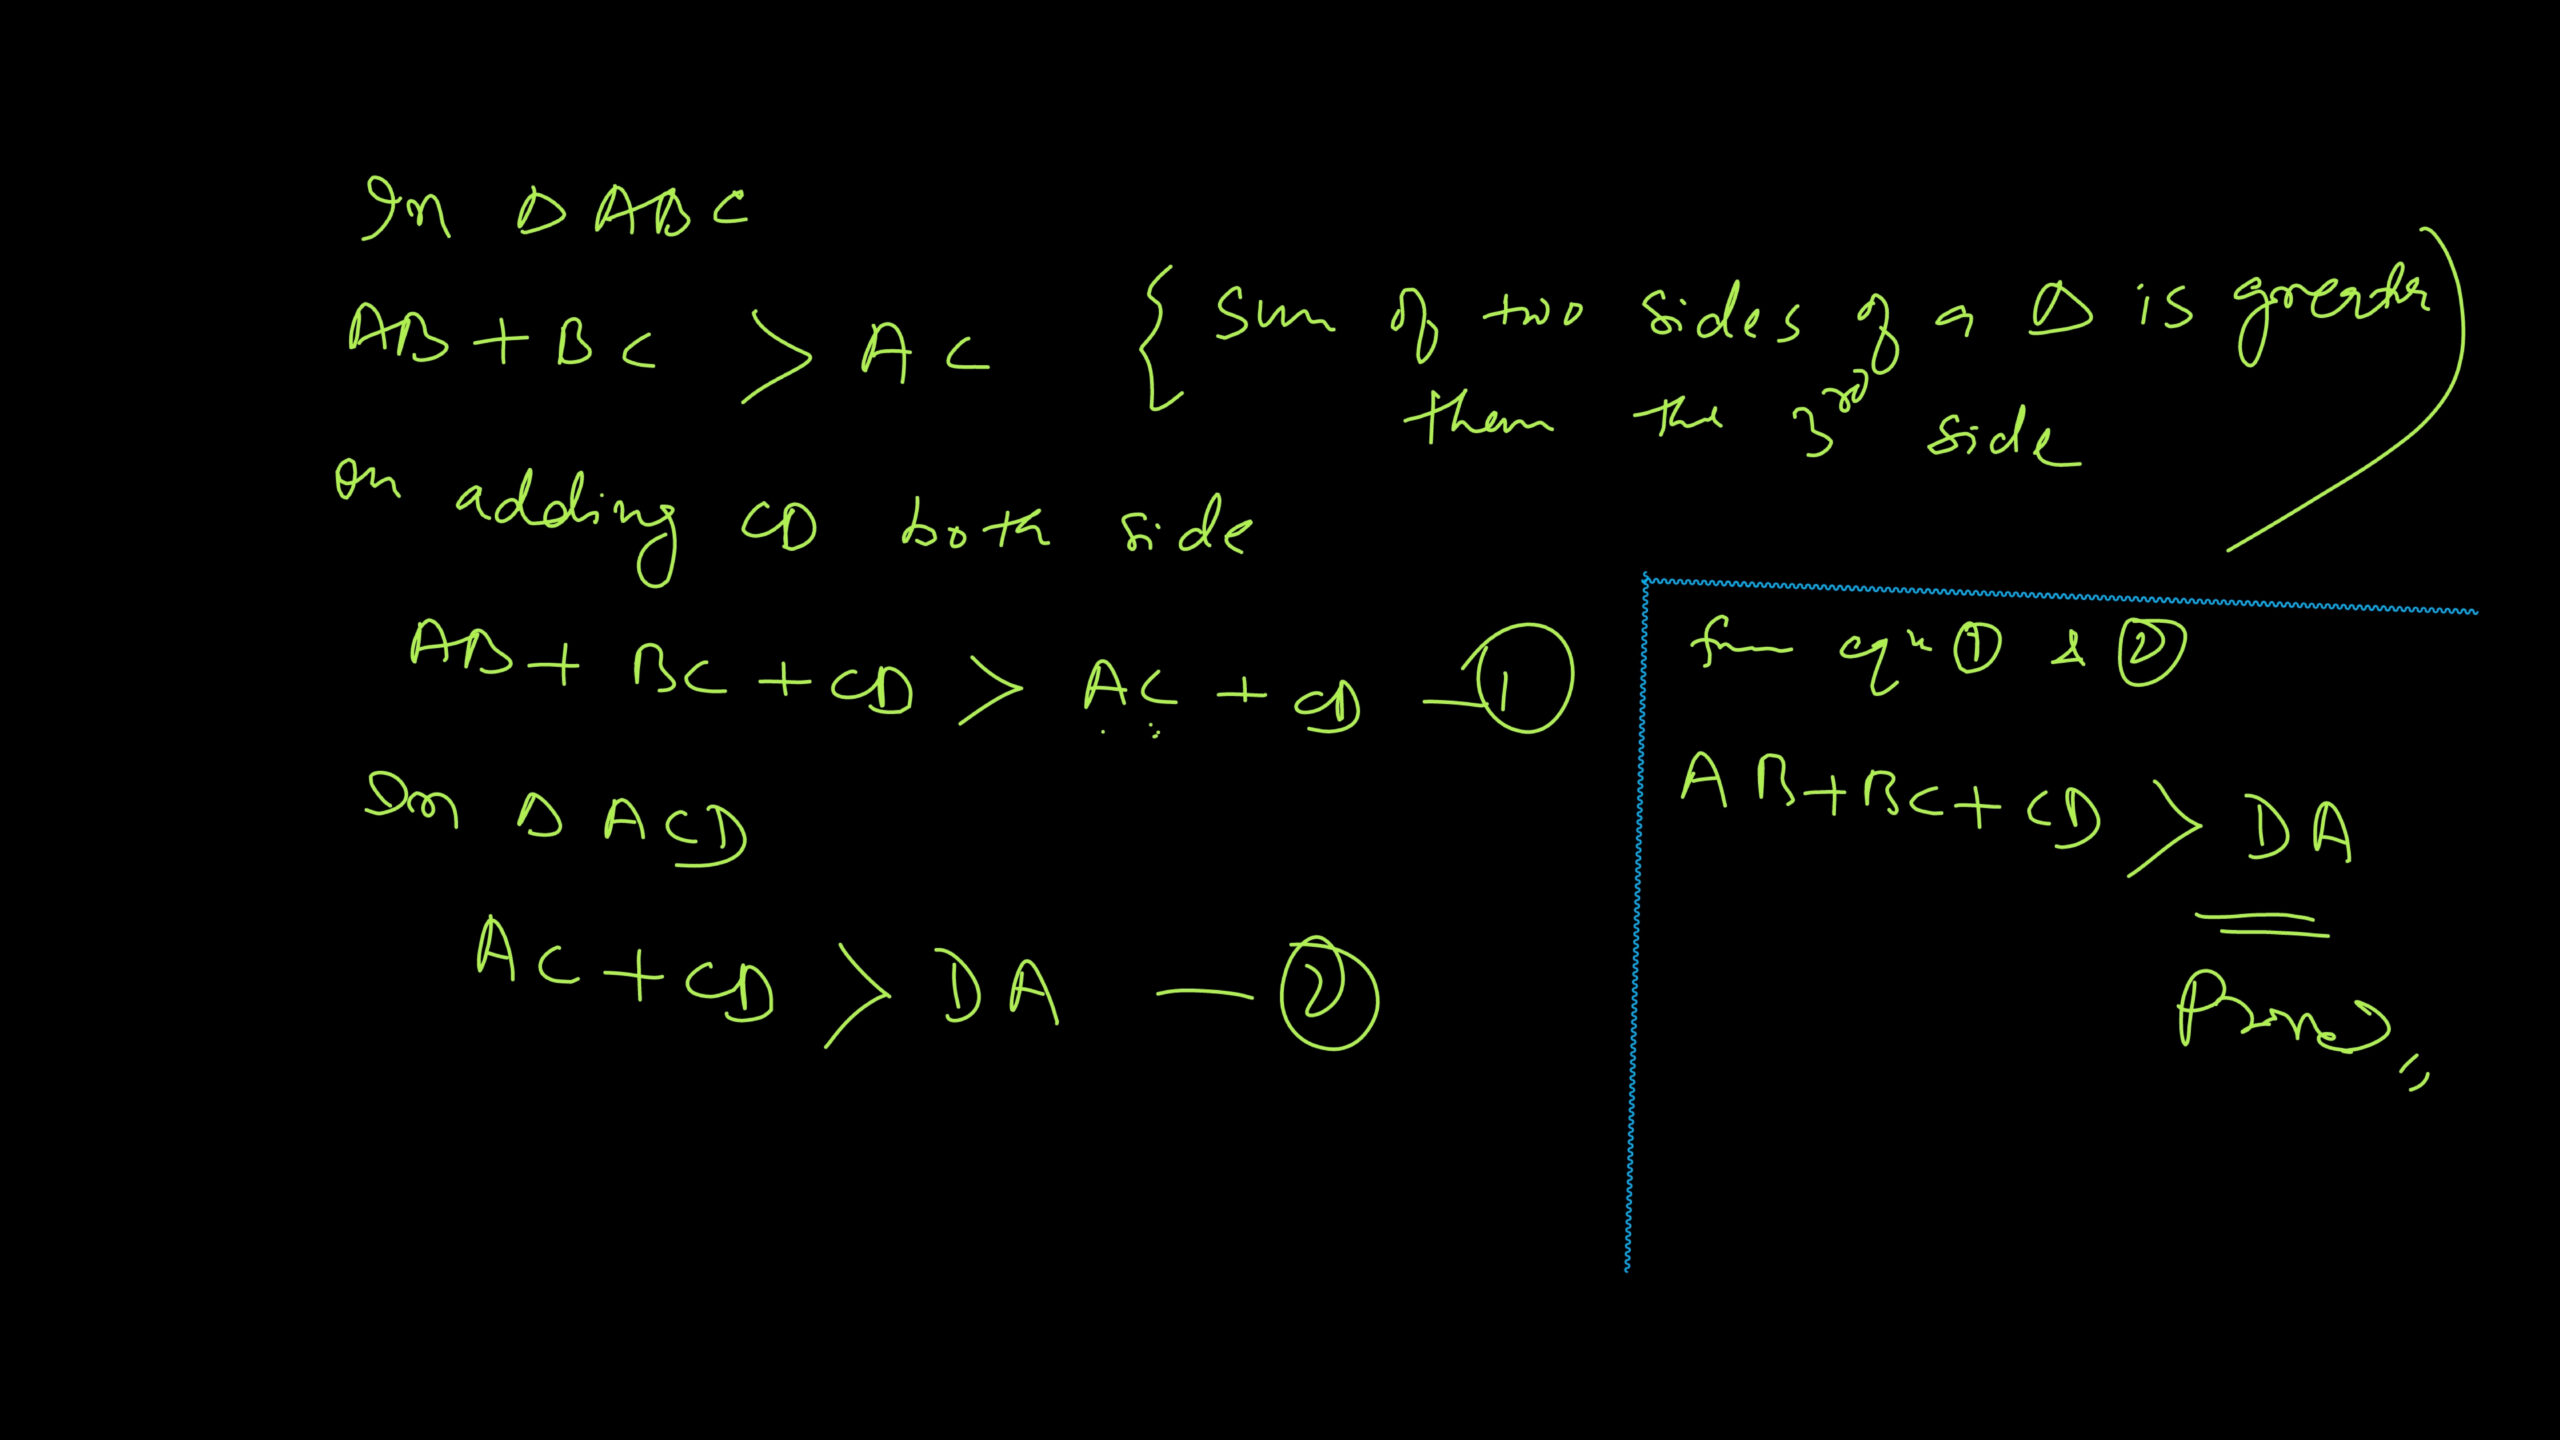 In Δ ABC
AB + BC > AC { Sum of two sides of a Δ is greater
than the 3rd side )
on adding CD both side
AB + BC + CD > AC + CD — ①
In Δ ACD
AC + CD > DA — ②
from eqn ① & ②
AB + BC + CD > DA
Proved,,